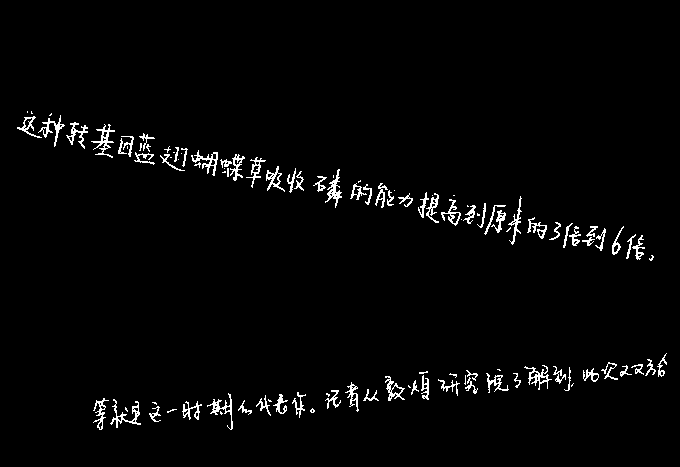 这种转基因蓝翅蝴蝶草吸收磷的能力提高到原来的3倍到6倍。
等就是这一时期的代表作。记者从敦煌研究院了解到,此次双方合